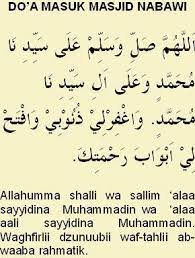 DO'A MASUK MASJID NABAWI
اَللّٰهُمَّ صَلِّ وَسَلِّمْ عَلَى سَيِّدِ نَا
مُحَمَّدٍ وَعَلَى الِ سَيِّدِ نَا
مُحَمَّدٍ. وَاغْفِرْلِيْ ذُنُوْبِيْ وَافْتَحْ
لِيْ اَبْوَابَ رَحْمَتِكَ.
Allahumma shalli wa sallim 'alaa
sayyidina Muhammadin wa 'alaa
aali sayyidina Muhammadin.
Waghfirlii dzunuubii waf-tahlii ab-
waaba rahmatik.